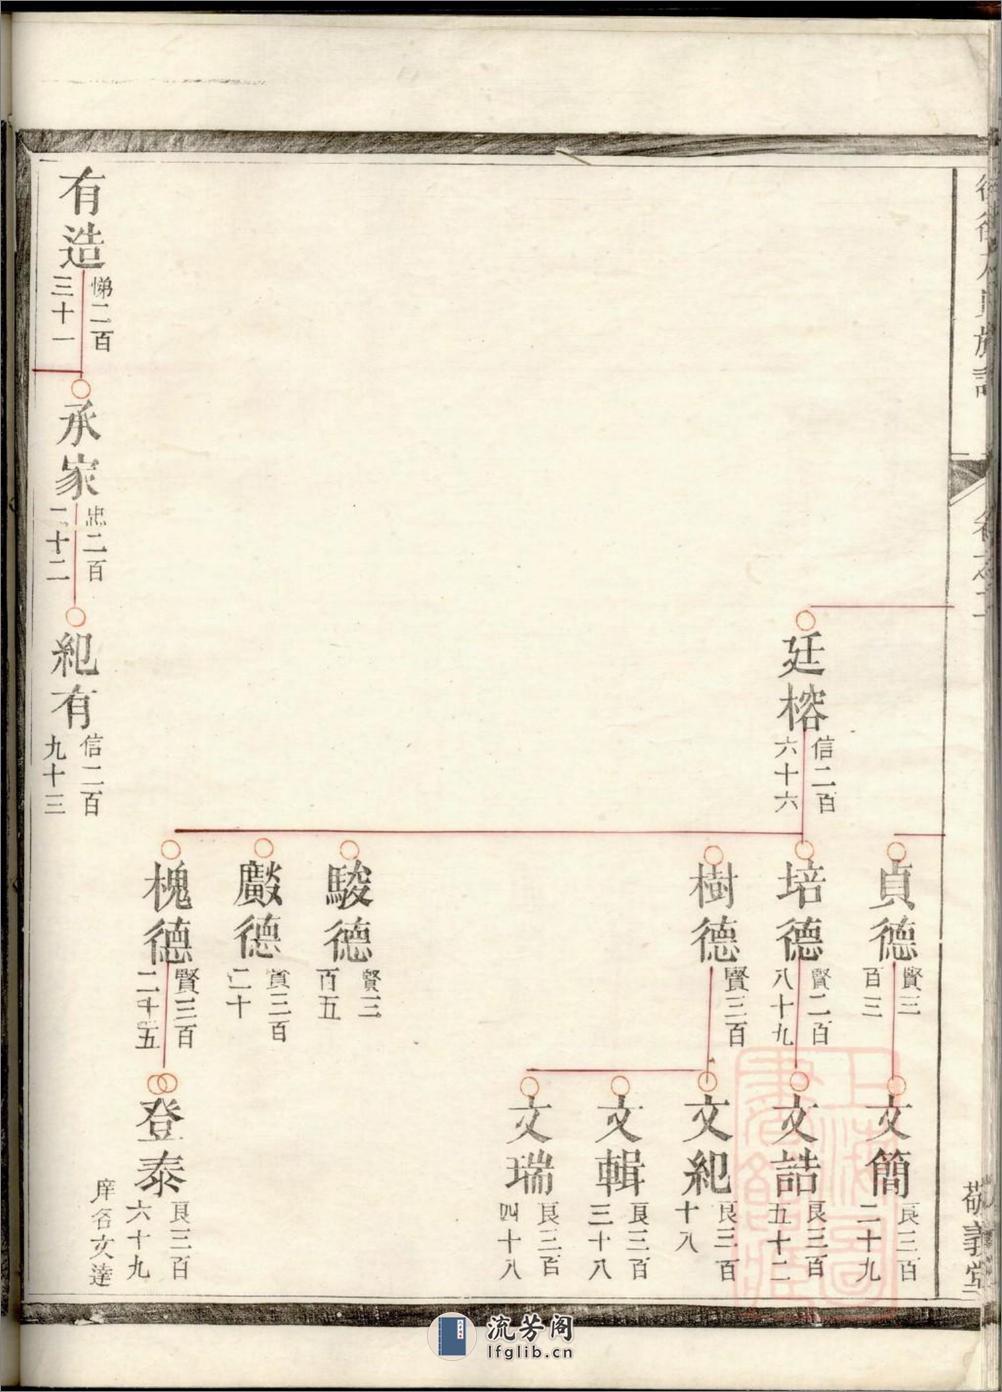 敬義堂
貞德
賢三
百三
文簡
良三百
二十九
廷榕
信二百
六十六
培德
賢二百
八十九
文誥
良三百
五十二
樹德
賢三百
文紀
良三百
十八
文輯
良三百
三十八
文瑞
良三百
四十八
駿德
賢三
百五
賢三百
二十
槐德
賢三百
二十五
登泰
良三百
六十九
庠名文達
有造
悌二百
三十一
承家
忠二百
二十二
紀有
信二百
九十三
流芳阁
lfglib.cn